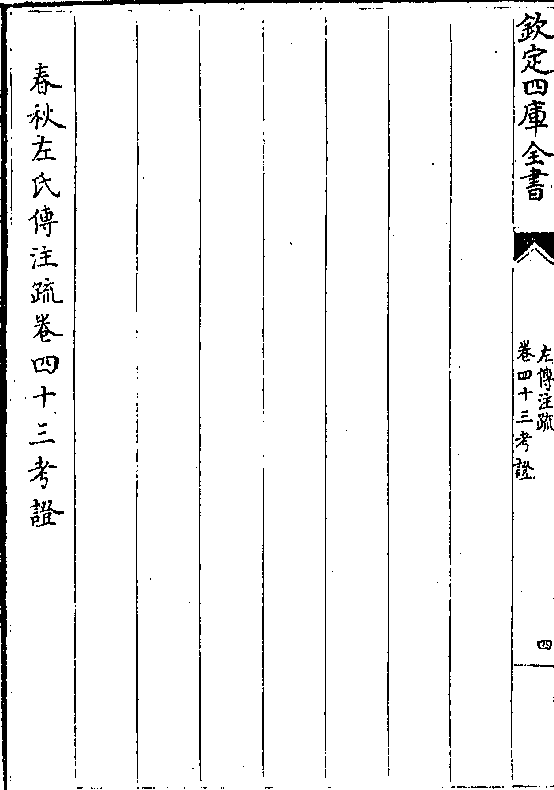 欽定四庫全書
左傳注疏
卷四十三考證
四
春秋左氏傳注疏卷四十三考證